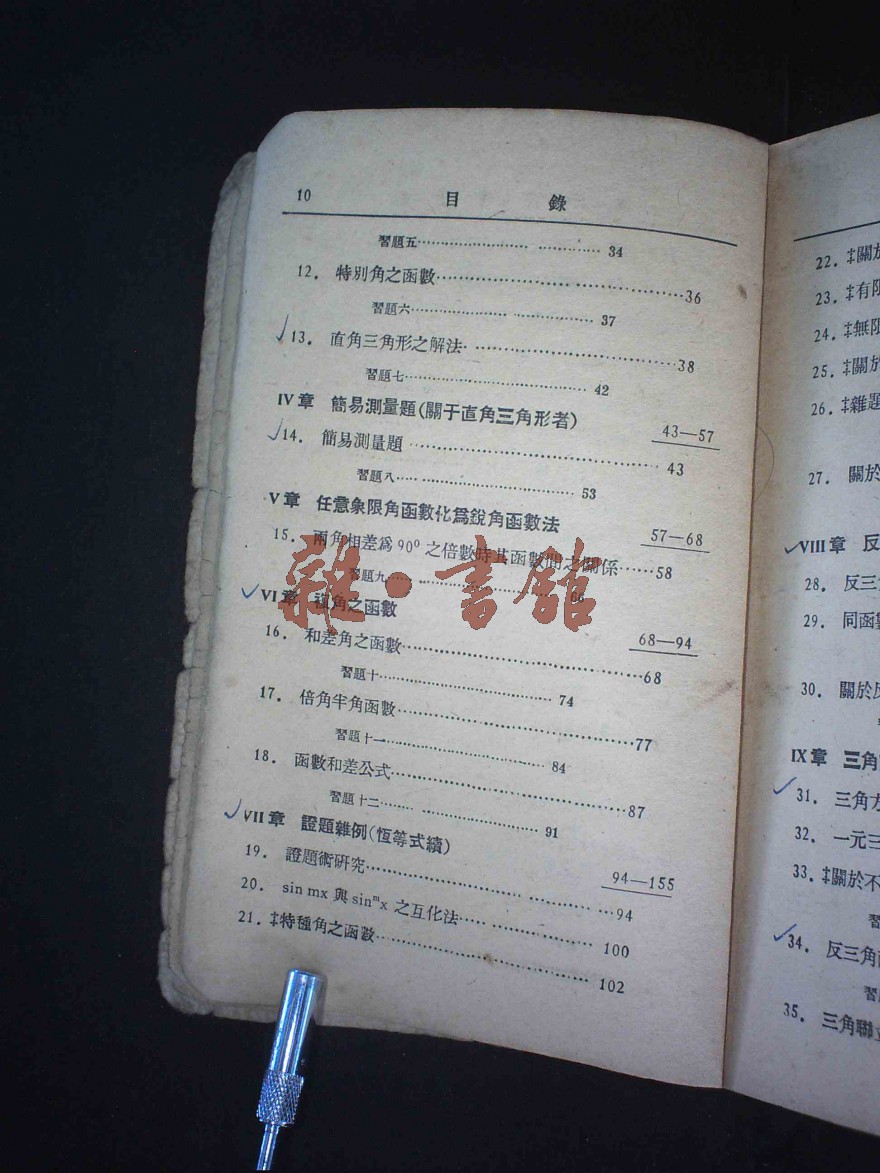 10 目 錄
習題五 34
12. 特別角之函數 36
習題六 37
13. 直角三角形之解法 38
習題七 42
IV章 簡易測量題(關于直角三角形者) 43—57
14. 簡易測量題 43
習題八 53
V章 任意象限角函數化爲銳角函數法 57—68
15. 兩角相差爲90°之倍數時其函數間之關係 58
習題九 66
VI章 複角之函數 68—94
16. 和差角之函數 68
習題十 74
17. 倍角半角函數 77
習題十一 84
18. 函數和差公式 87
習題十二 91
VII章 證題雜例(恆等式續) 94—155
19. 證題術研究 94
20. sin mx 與 sinᵐx 之互化法 100
21. ‡特種角之函數 102
雜·書館
22. ‡關於
23. ‡有限
24. ‡無限
25. ‡關於
26. ‡雜題
27. 關於
VIII章 反
28. 反三
29. 同函數
30. 關於反
IX章 三角
31. 三角方
32. 一元三
33. ‡關於不
習
34. 反三角
習
35. 三角聯立